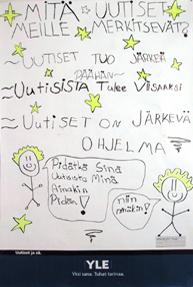 MITÄ UUTISET
MEILLE MERKITSEVÄT?
~UUTISET TUO JÄRKEÄ
PÄÄHÄN~
~UUTISISTA Tulee Viisaaksi
~UUTISET ON JÄRKEVÄ
OHJELMA
Pidätkö Sinä
Uutisista Minä
Ainakin
Pidän!
niin
minäkin!
Uutiset ja sä.
YLE
Yksi sana. Tuhat tarinaa.